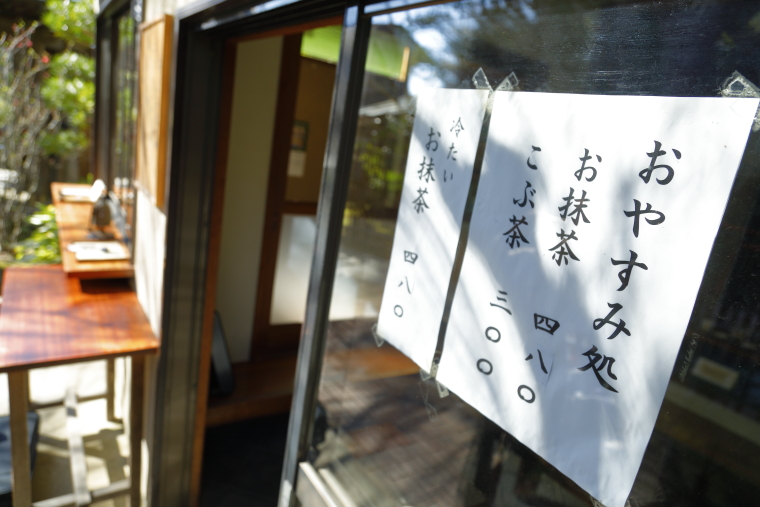 おやすみ処
お抹茶 四八〇
こぶ茶 三〇〇
冷たい
お抹茶 四八〇